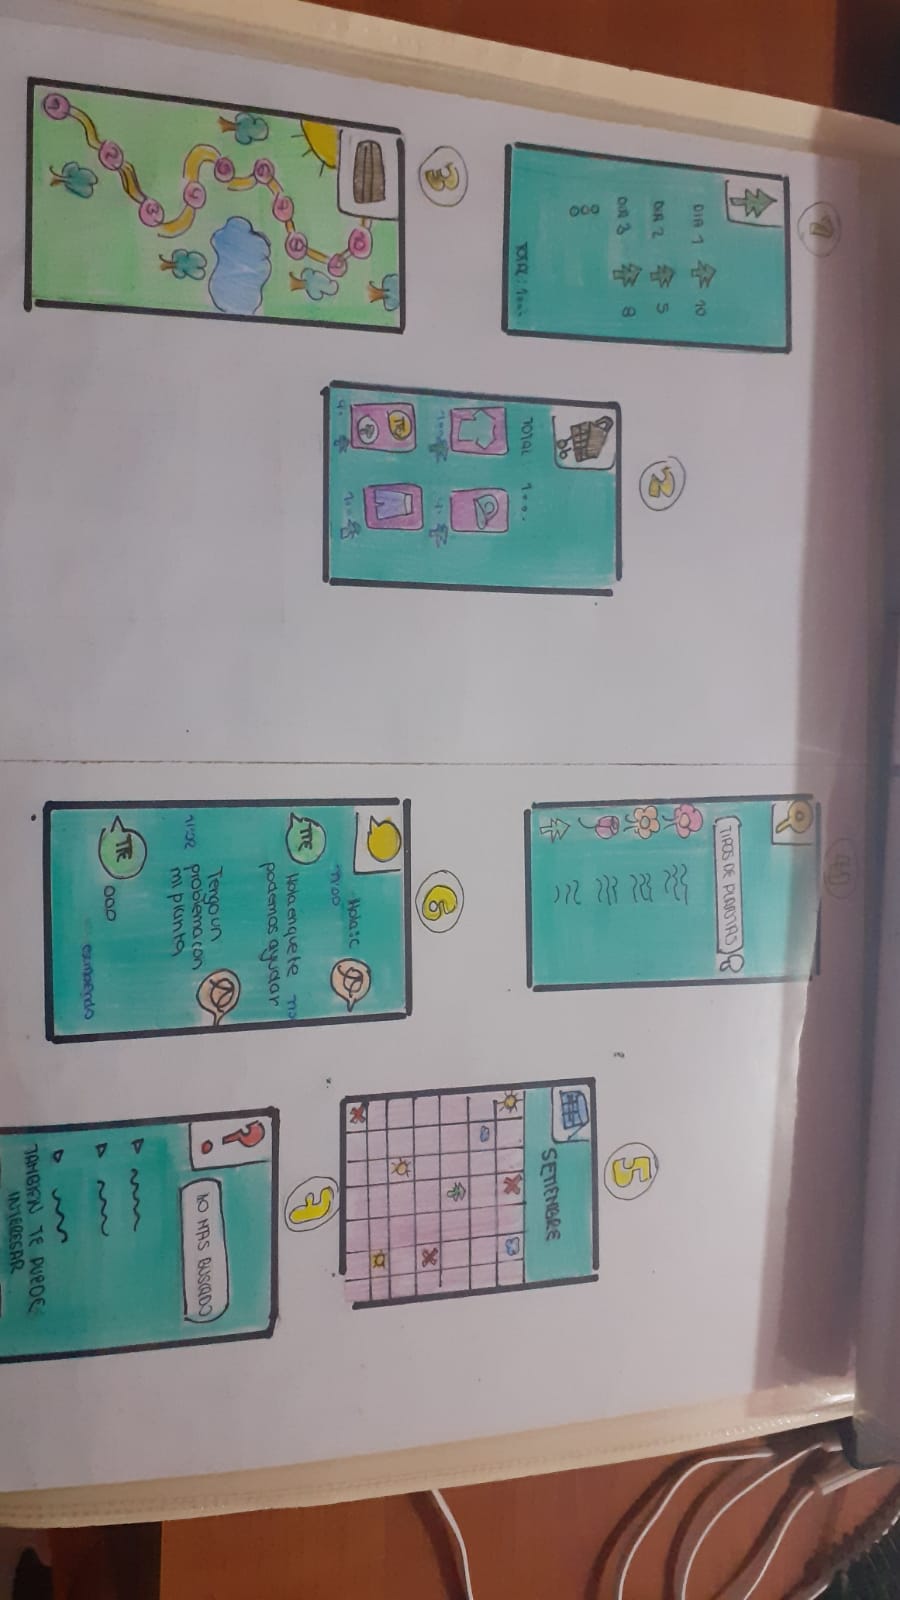 1
DIA 1 10
DIA 2 5
DIA 3 8
TOTAL: 1000
2
TOTAL
3
10
6
5
4
3
2
1
4
TIPOS DE PLANTAS
5
SETIEMBRE
6
Hola :c
11:00
TTE
Hola en que te
podemos ayudar
Tengo un
11:02 problema con
mi planta
TTE
ooo
escribiendo
7
LO MAS BUSCADO
TAMBIEN TE PUEDE
INTERESAR